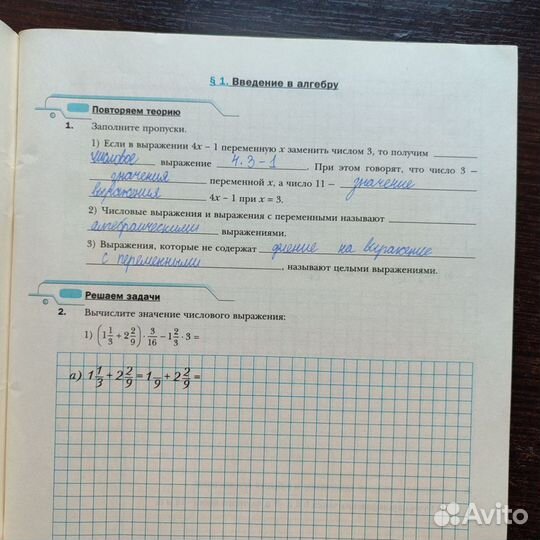 § 1. Введение в алгебру
Повторяем теорию
1. Заполните пропуски.
1) Если в выражении 4x – 1 переменную x заменить числом 3, то получим
числовое выражение 4·3-1. При этом говорят, что число 3 –
значения переменной x, а число 11 – значение
выражения 4x – 1 при x = 3.
2) Числовые выражения и выражения с переменными называют
алгебраическими выражениями.
3) Выражения, которые не содержат деление на выражение
с переменными, называют целыми выражениями.
Решаем задачи
2. Вычислите значение числового выражения:
1) (1 1/3 + 2 2/9) · 3/16 – 1 2/3 · 3 =
а) 1 1/3 + 2 2/9 = 1 /9 + 2 2/9 =
Avito